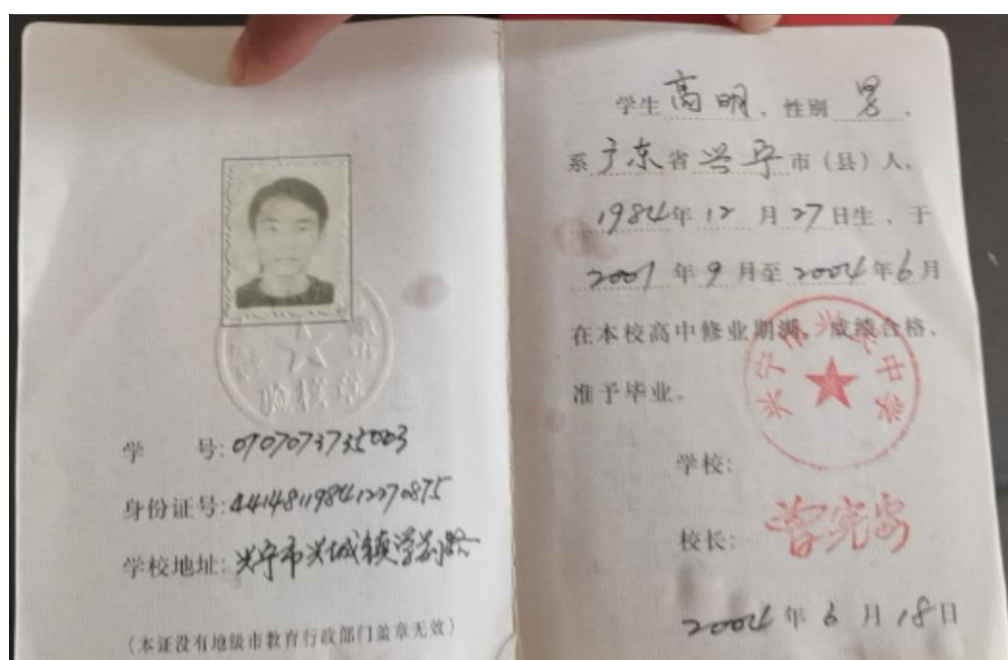 学 号: 0107073735003
身份证号: 441481198412270875
学校地址: 兴宁市兴城镇学前路
(本证没有地级市教育行政部门盖章无效)
验核章
学生高明，性别男，
系广东省兴宁市（县）人，
1984年12月27日生，于
2001年9月至2004年6月
在本校高中修业期满，成绩合格，
准予毕业。
兴宁市兴民中学
学校:
校长: 曾宪安
2004年6月18日